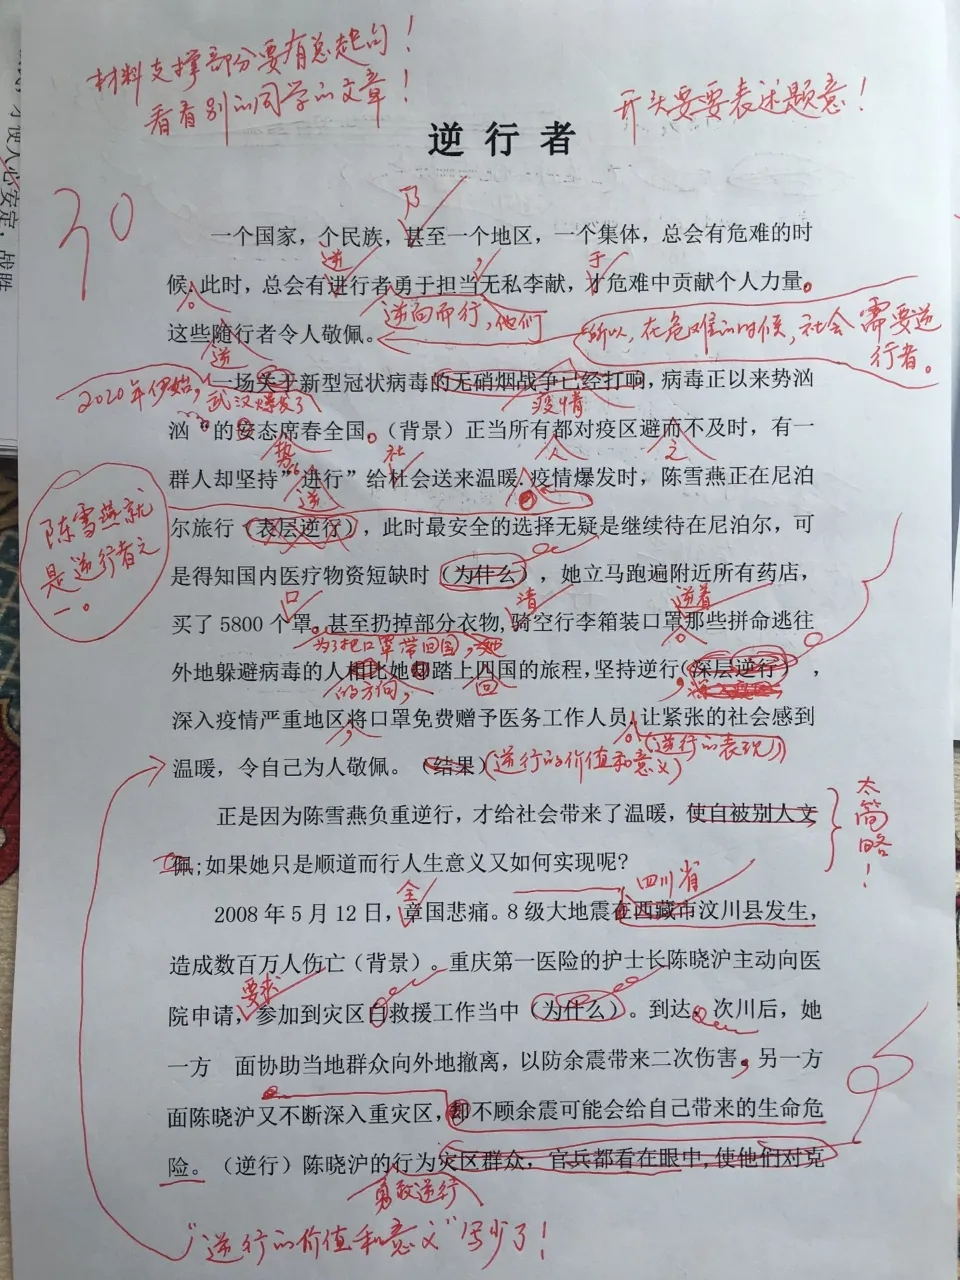 材料支撑部分要有总起句！
看看别的同学的文章！
开头要要表述题意！
逆行者
30
乃
一个国家，个民族，甚至一个地区，一个集体，总会有危难的时
逆
，
于
候.此时，总会有进行者勇于担当无私李献，才危难中贡献个人力量。
。
逆向而行，他们
所以，在危难的时候，社会需要逆
行者。
这些随行者令人敬佩。
逆
2020年伊始，武汉爆发了
一场关于新型冠状病毒的无硝烟战争已经打响，病毒正以来势汹
疫情
汹”的姿态席春全国。（背景）正当所有都对疫区避而不及时，有一
势
社
人
之
群人却坚持”进行”给杜会送来温暖.疫情爆发时，陈雪燕正在尼泊
逆
陈雪燕就
是逆行者之
一。
尔旅行（表层逆行），此时最安全的选择无疑是继续待在尼泊尔，可
是得知国内医疗物资短缺时（为什么），她立马跑遍附近所有药店，
口
清
逆着
买了 5800 个罩。甚至扔掉部分衣物,骑空行李箱装口罩那些拼命逃往
为了把口罩带回国，她
。
外地躲避病毒的人相比她却踏上四国的旅程,坚持逆行（深层逆行），
的方向，
回
深入疫情严重地区将口罩免费赠予医务工作人员,让紧张的社会感到
，
。
（逆行的表现）
温暖，令自己为人敬佩。（结果）
（逆行的价值和意义）
正是因为陈雪燕负重逆行，才给社会带来了温暖，使自被别人文
佩;如果她只是顺道而行人生意义又如何实现呢?
太简略！
全
四川省
2008 年 5 月 12 日，章国悲痛。8 级大地震在西藏市汶川县发生，
造成数百万人伤亡（背景）。重庆第一医险的护士长陈晓沪主动向医
要求
院申请，参加到灾区白救援工作当中（为什么）。到达，次川后，她
一方　面协助当地群众向外地撤离，以防余震带来二次伤害，另一方
面陈晓沪又不断深入重灾区，却不顾余震可能会给自己带来的生命危
险。（逆行）陈晓沪的行为灾区群众，官兵都看在眼中,使他们对克
勇敢逆行
“逆行的价值和意义”写少了！